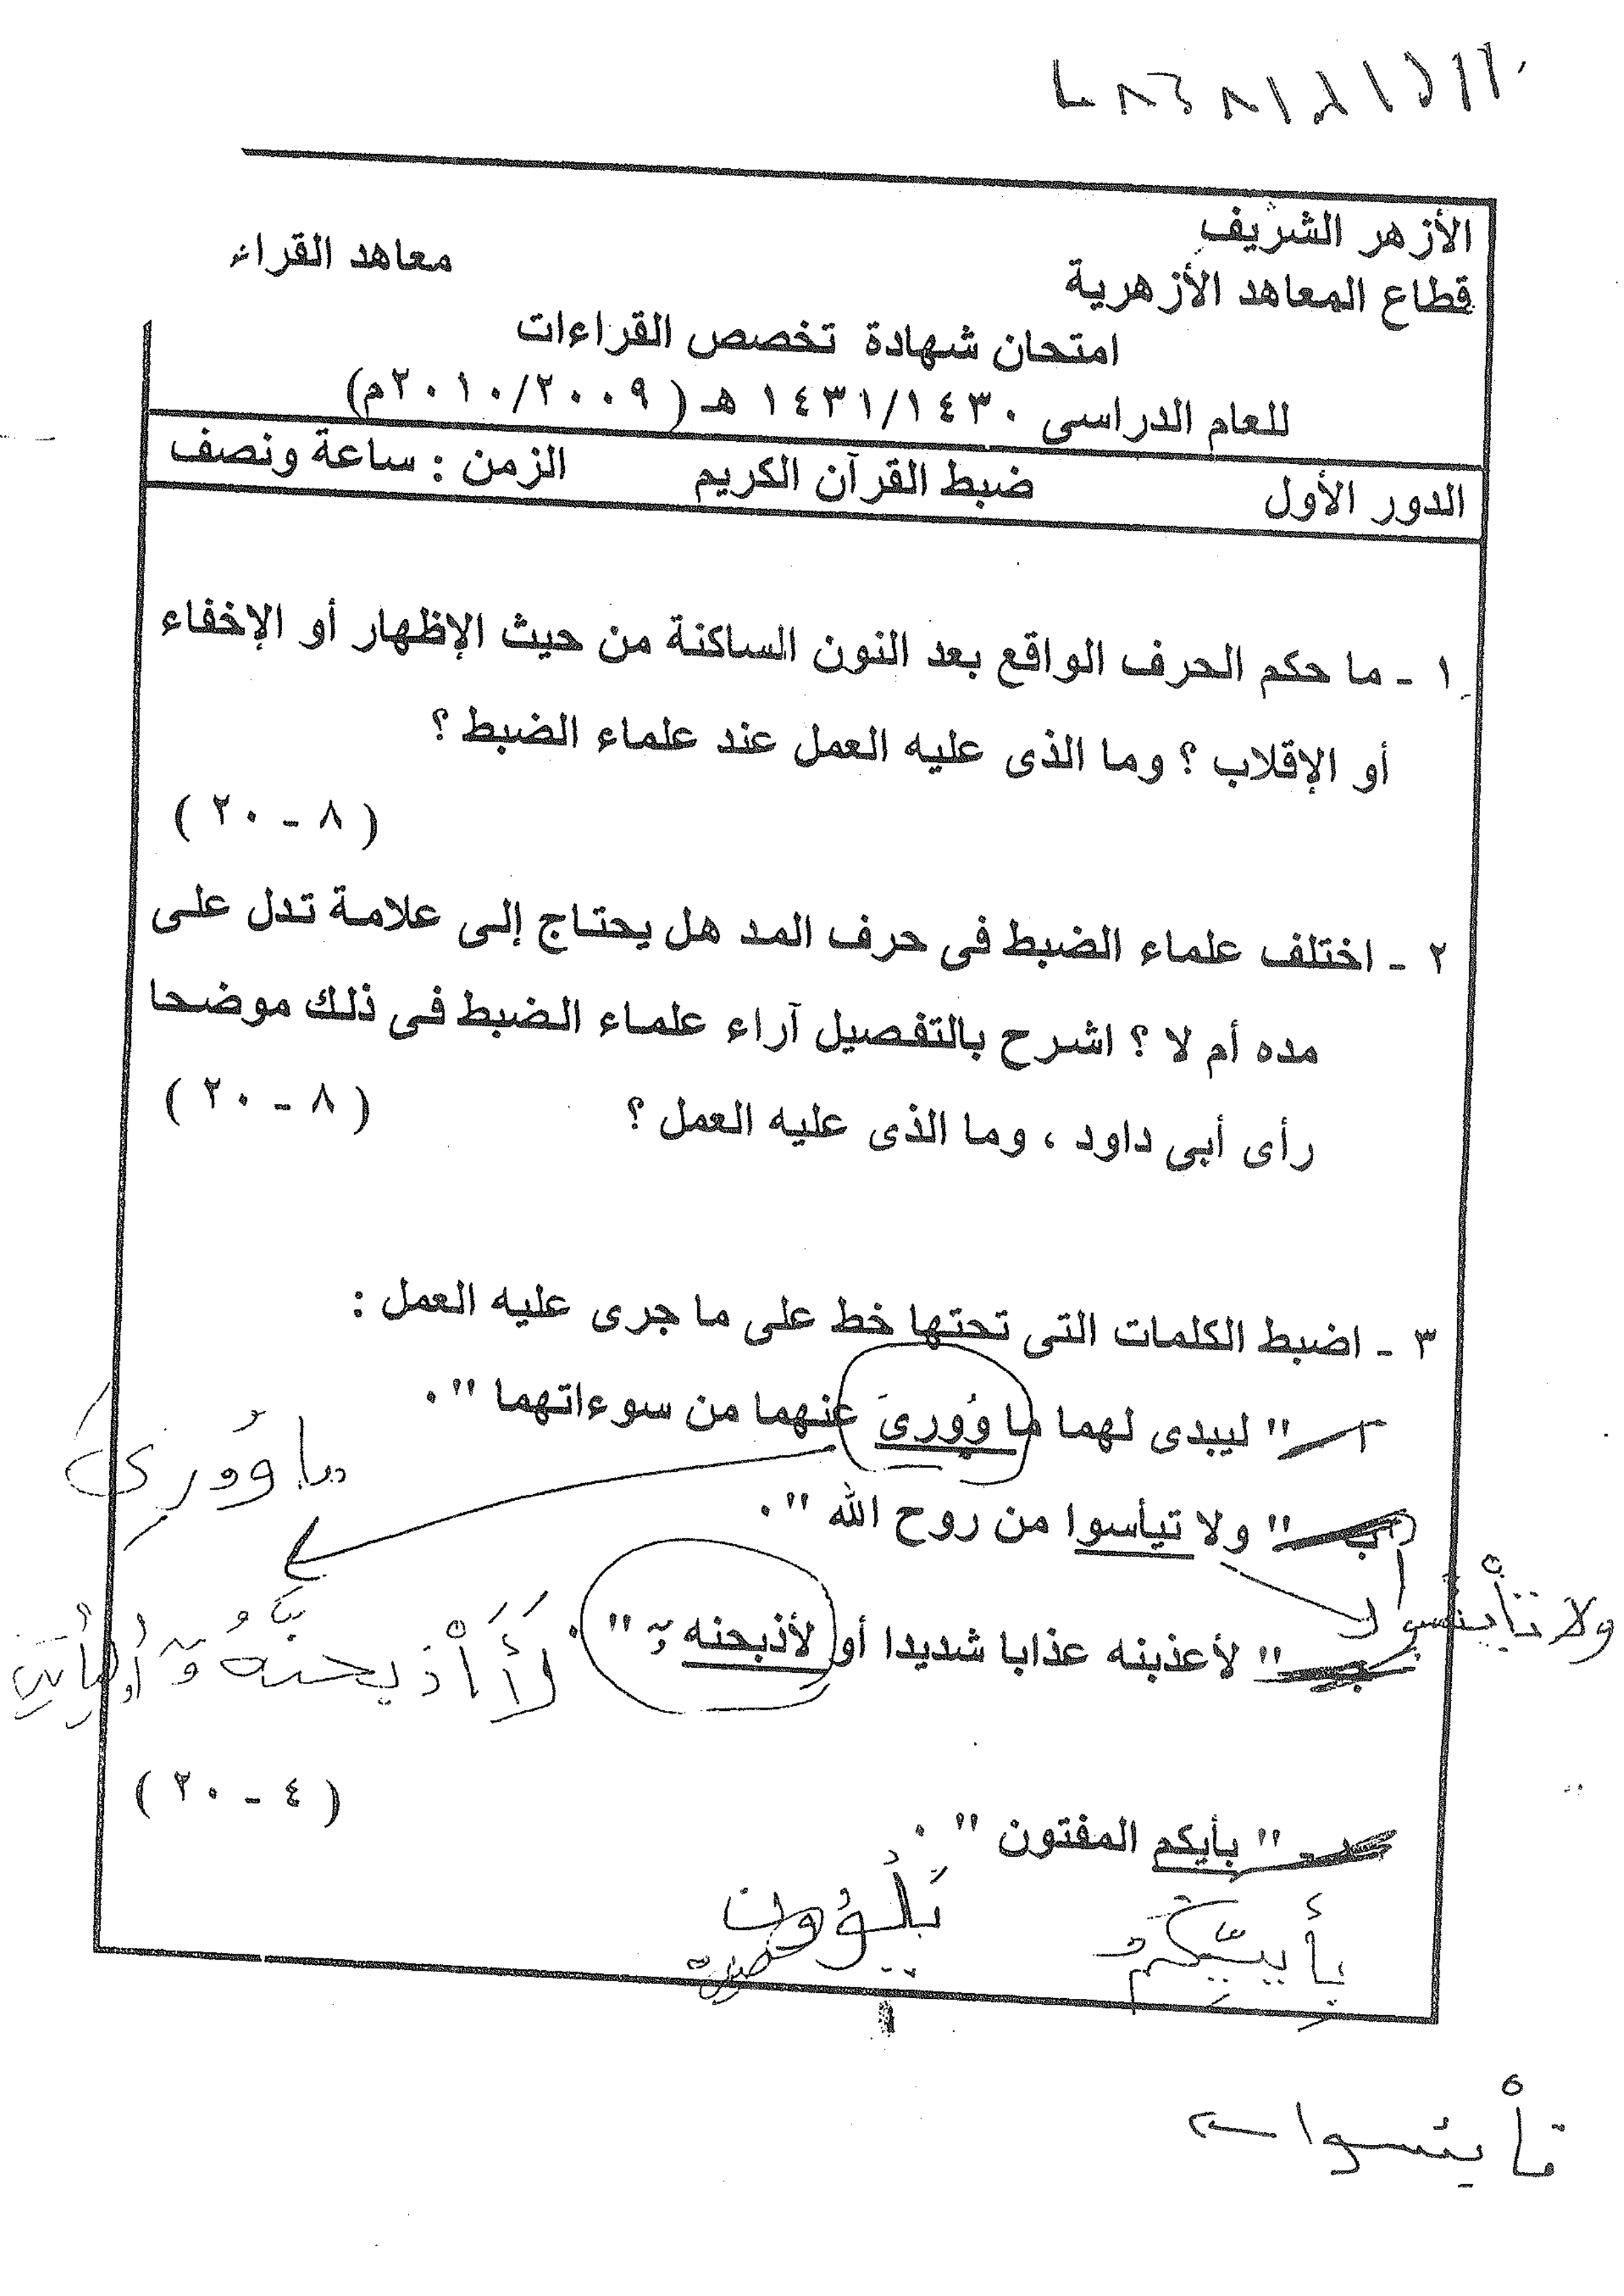 الأزهر الشريف
معاهد القراء
قطاع المعاهد الأزهرية
امتحان شهادة تخصص القراءات
للعام الدراسى ١٤٣١/١٤٣٠ هـ ( ٢٠١٠/٢٠٠٩م)
الدور الأول ضبط القرآن الكريم الزمن : ساعة ونصف
١ - ما حكم الحرف الواقع بعد النون الساكنة من حيث الإظهار أو الإخفاء
أو الإقلاب ؟ وما الذى عليه العمل عند علماء الضبط ؟
( ٨ - ٢٠ )
٢ - اختلف علماء الضبط فى حرف المد هل يحتاج إلى علامة تدل على
مده أم لا ؟ اشرح بالتفصيل آراء علماء الضبط فى ذلك موضحا
رأى أبى داود ، وما الذى عليه العمل ؟ ( ٨ - ٢٠ )
٣ - اضبط الكلمات التى تحتها خط على ما جرى عليه العمل :
أ - " ليبدى لهما ما وُورىَ عنهما من سوءاتهما " .
ما وُورِىَ
ب - " ولا تيأسوا من روح الله " .
ولا تأيئسوا
جـ - " لأعذبنه عذابا شديدا أو لأذبحنه " .
لَأَاْذبحنَّهُ
( ٤ - ٢٠ )
د - " بأيكم المفتون " .
بِأَييِّكم
تَلْوُون
تأيئسوا